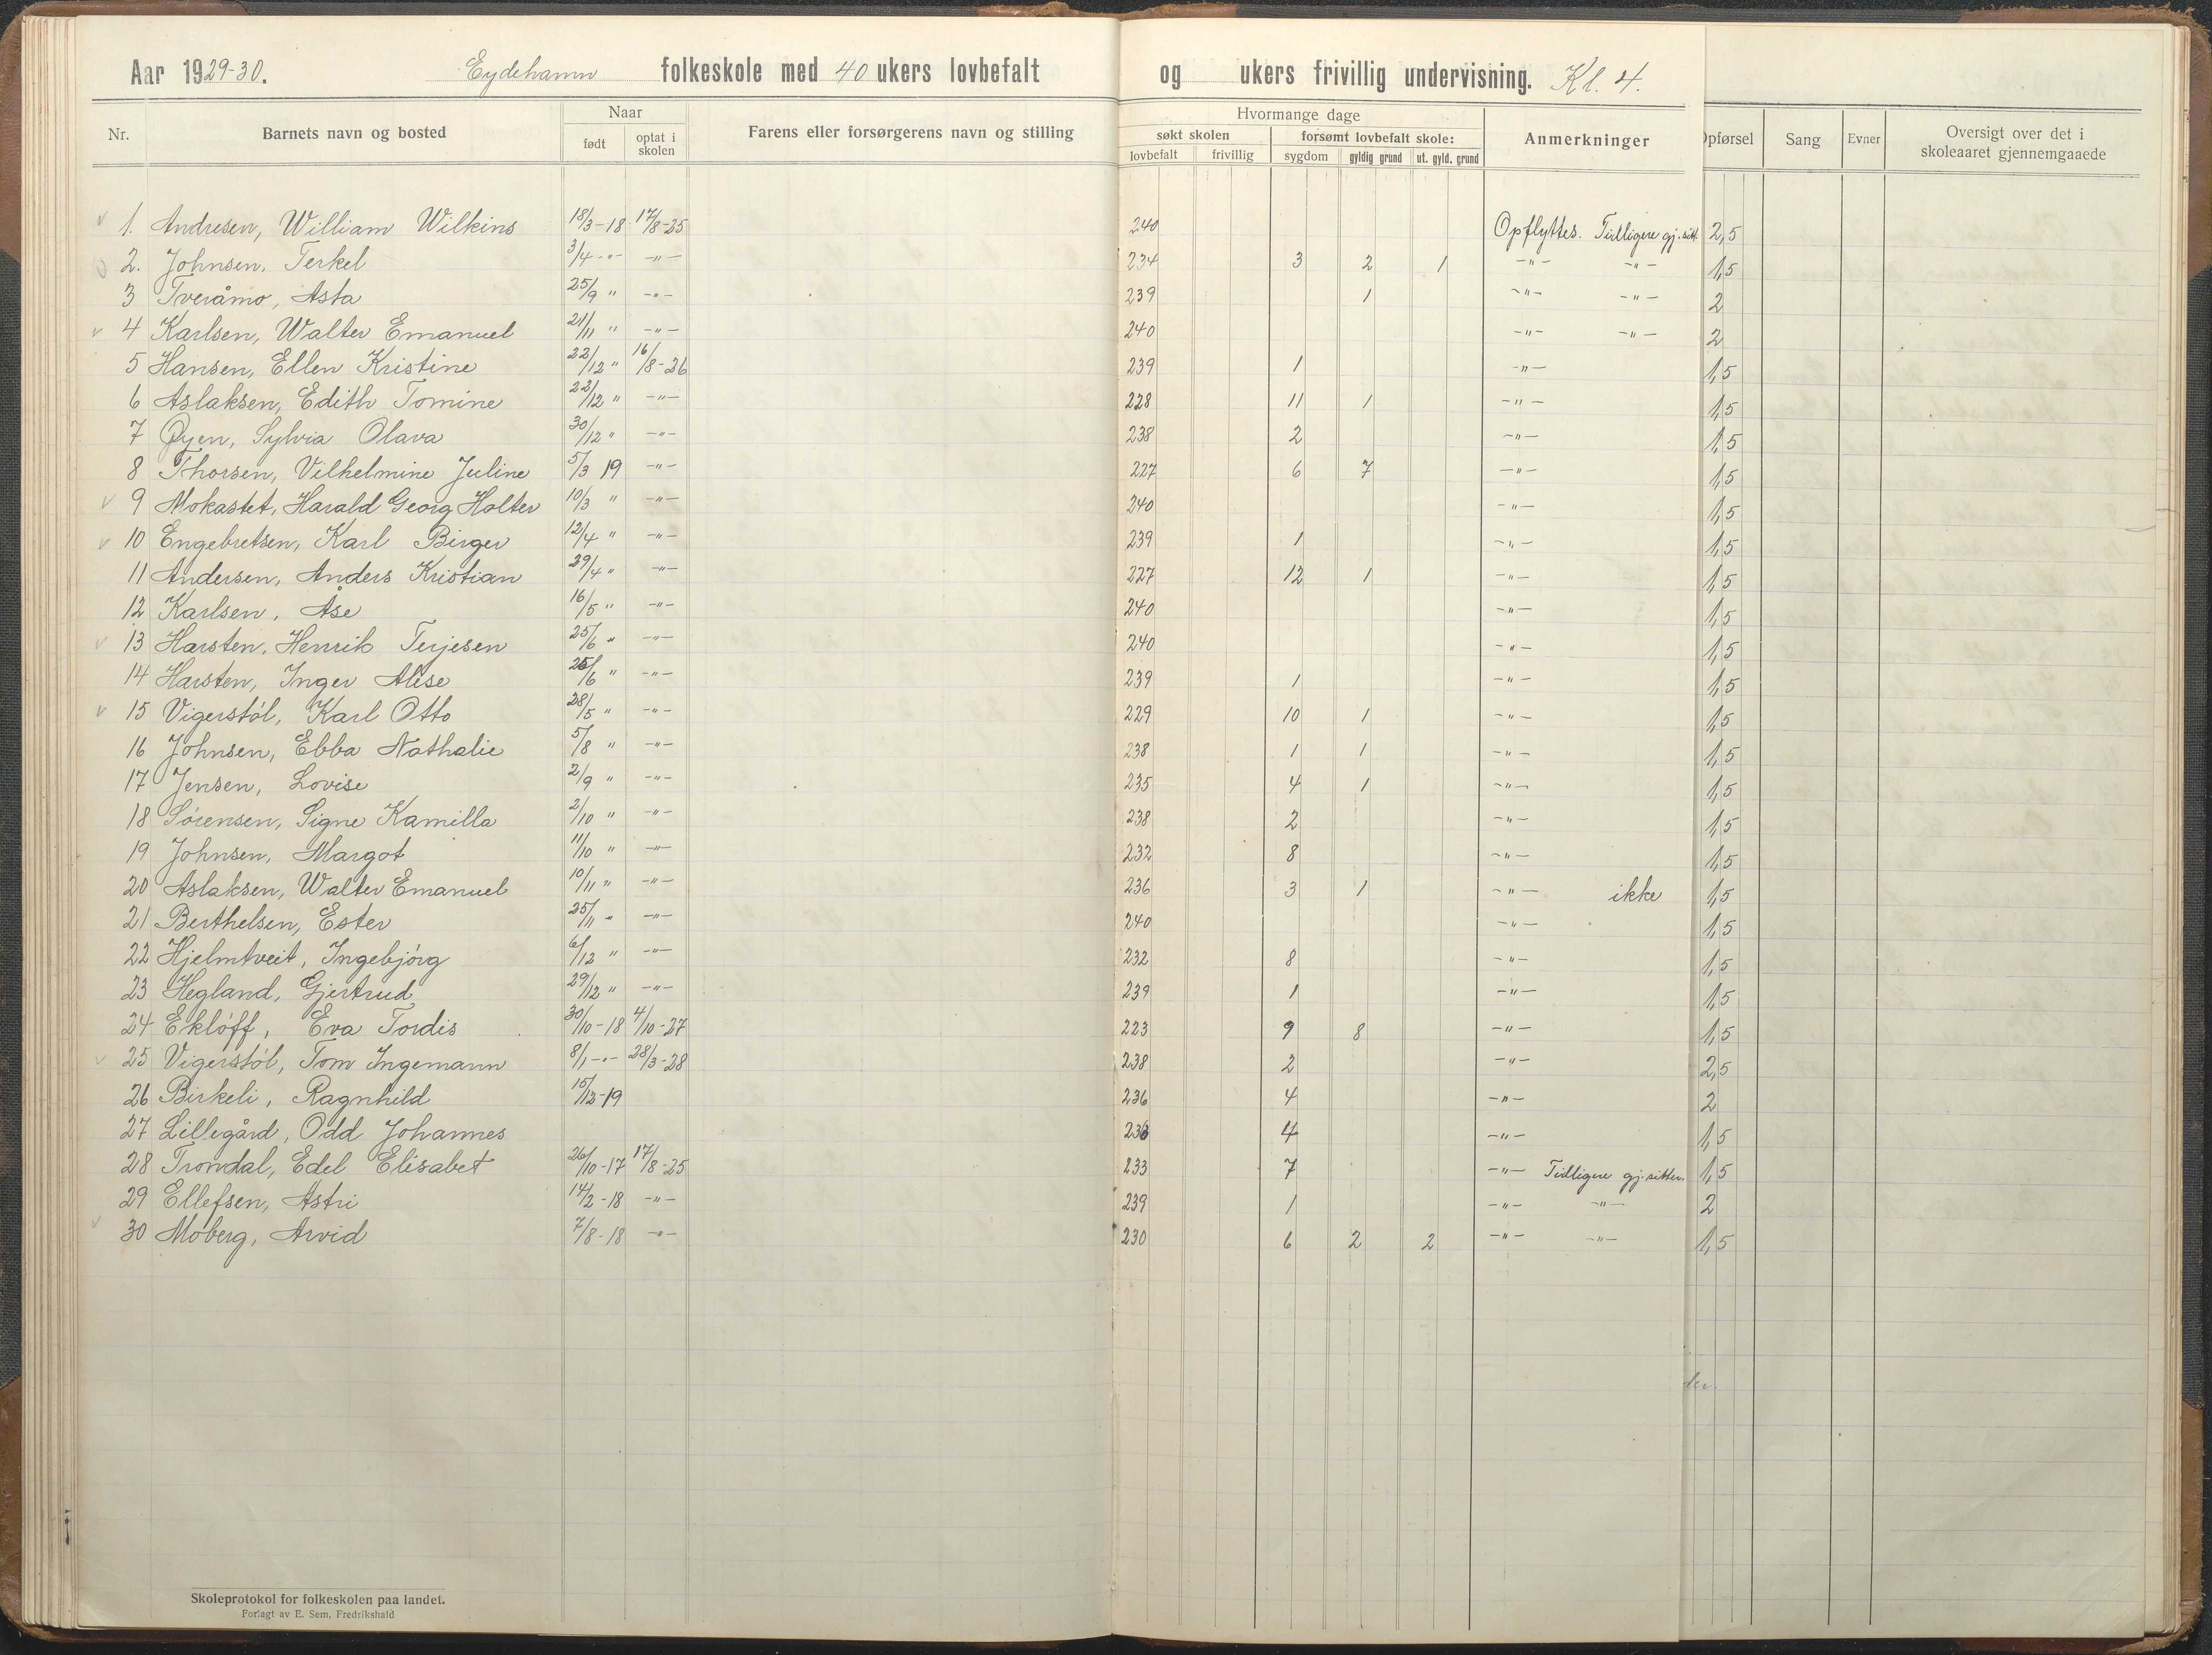 Aar 1929-30. Eydehamn folkeskole med 40 ukers lovbefalt og ukers frivillig undervisning. Kl. 4.
Nr. Barnets navn og bosted Naar født optat i skolen Farens eller forsørgerens navn og stilling Hvormange dage søkt skolen lovbefalt frivillig forsømt lovbefalt skole: sygdom gyldig grund ut. gyld. grund Anmerkninger Opførsel Sang Evner Oversigt over det i skoleaaret gjennemgaaede
v 1. Andresen, William Wilkins 18/3-18 17/8-25 240 Opflyttes. Tidligere gj.sitt. 2,5
2. Johnsen, Terkel 3/4 -"- -"- 234 3 2 1 -"- -"- 1,5
3 Tveråmo, Asta 25/9 " -"- 239 1 -"- -"- 2
v 4 Karlsen, Walter Emanuel 21/11 " -"- 240 -"- -"- 2
5 Hansen, Ellen Kristine 22/12 " 16/8-26 239 1 -"- 1,5
6 Aslaksen, Edith Tomine 22/12 " -"- 228 11 1 -"- 1,5
7 Øyen, Sylvia Olava 30/12 " -"- 238 2 -"- 1,5
8 Thorsen, Vilhelmine Juline 5/3 19 -"- 227 6 7 -"- 1,5
v 9 Mokastet, Harald Georg Holter 10/3 " -"- 240 -"- 1,5
v 10 Engebretsen, Karl Birger 12/4 " -"- 239 1 -"- 1,5
11 Andersen, Anders Kristian 29/4 " -"- 227 12 1 -"- 1,5
12 Karlsen, Åse 16/5 " -"- 240 -"- 1,5
v 13 Harsten, Henrik Terjesen 25/6 " -"- 240 -"- 1,5
14 Harsten, Inger Alise 25/6 " -"- 239 1 -"- 1,5
v 15 Vigerstøl, Karl Otto 28/5 " -"- 229 10 1 -"- 1,5
16 Johnsen, Ebba Nathalie 5/8 " -"- 238 1 1 -"- 1,5
17 Jensen, Lovise 2/9 " -"- 235 4 1 -"- 1,5
18 Sørensen, Signe Kamilla 2/10 " -"- 238 2 -"- 1,5
19 Johnsen, Margot 11/10 " -"- 232 8 -"- 1,5
20 Aslaksen, Walter Emanuel 10/11 " -"- 236 3 1 -"- ikke 1,5
21 Berthelsen, Ester 25/11 " -"- 240 -"- 1,5
22 Hjelmtveit, Ingebjørg 6/12 " -"- 232 8 -"- 1,5
23 Hegland, Gjertrud 29/12 " -"- 239 1 -"- 1,5
24 Ekløff, Eva Tordis 30/10-18 4/10-27 223 9 8 -"- 1,5
v 25 Vigerstøl, Tom Ingemann 8/1 -"- 28/3-28 238 2 -"- 2,5
26 Birkeli, Ragnhild 15/12-19 236 4 -"- 2
27 Lillegård, Odd Johannes 236 4 -"- 1,5
28 Trondal, Edel Elisabet 26/10-17 17/8-25 233 7 -"- Tidligere gj.sitter. 1,5
29 Ellefsen, Astri 14/2-18 -"- 239 1 -"- -"- 2
v 30 Moberg, Arvid 7/8-18 -"- 230 6 2 2 -"- -"- 1,5
Skoleprotokol for folkeskolen paa landet.
Forlagt av E. Sem, Fredrikshald